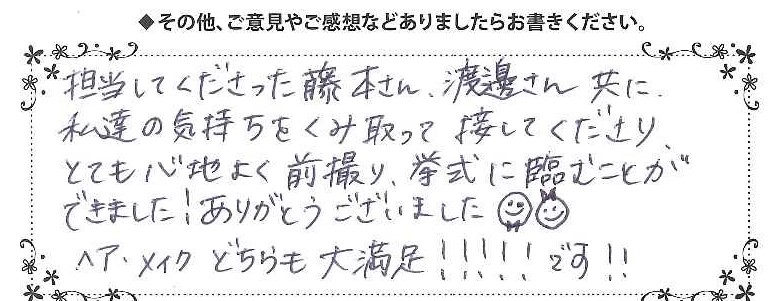 ◆その他、ご意見やご感想などありましたらお書きください。
担当してくださった藤本さん、渡邊さん共に、
私達の気持ちをくみ取って接してくださり、
とても心地よく前撮り、挙式に臨むことが
できました!ありがとうございました
ヘア・メイクどちらも大満足!!!!!です!!